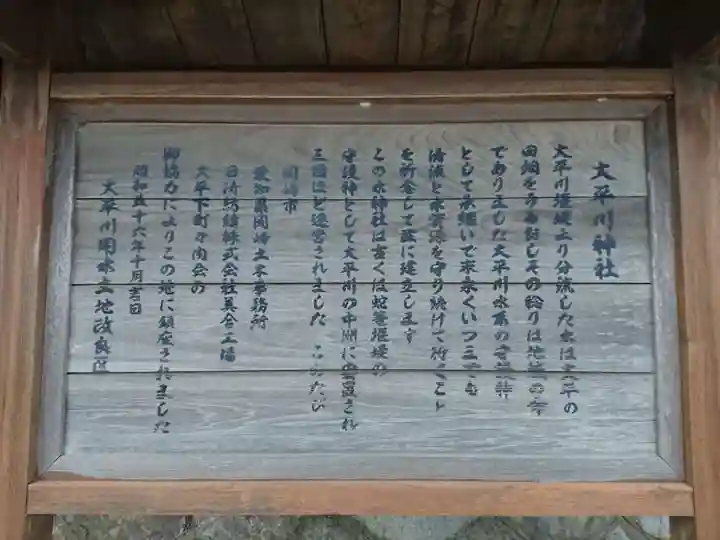 大平川神社
大平川堰堤より分流した水は大平の
田畑をうるおしその稔りは地域の幸
でありました大平川水系の守護神
として承継いで末永くいつまでも
清流と水資源を守り続けて行くこと
を祈念して茲に建立します
この水神社は古くは蛇篭堰堤の
守護神として大平川の中洲に安置され
三回ほど遷宮されました このたび
岡崎市
愛知県岡崎土木事務所
日清紡績株式会社美合工場
大平下町々内会の
御協力によりこの地に鎮座されました
昭和五十六年十月吉日
大平川用水土地改良区